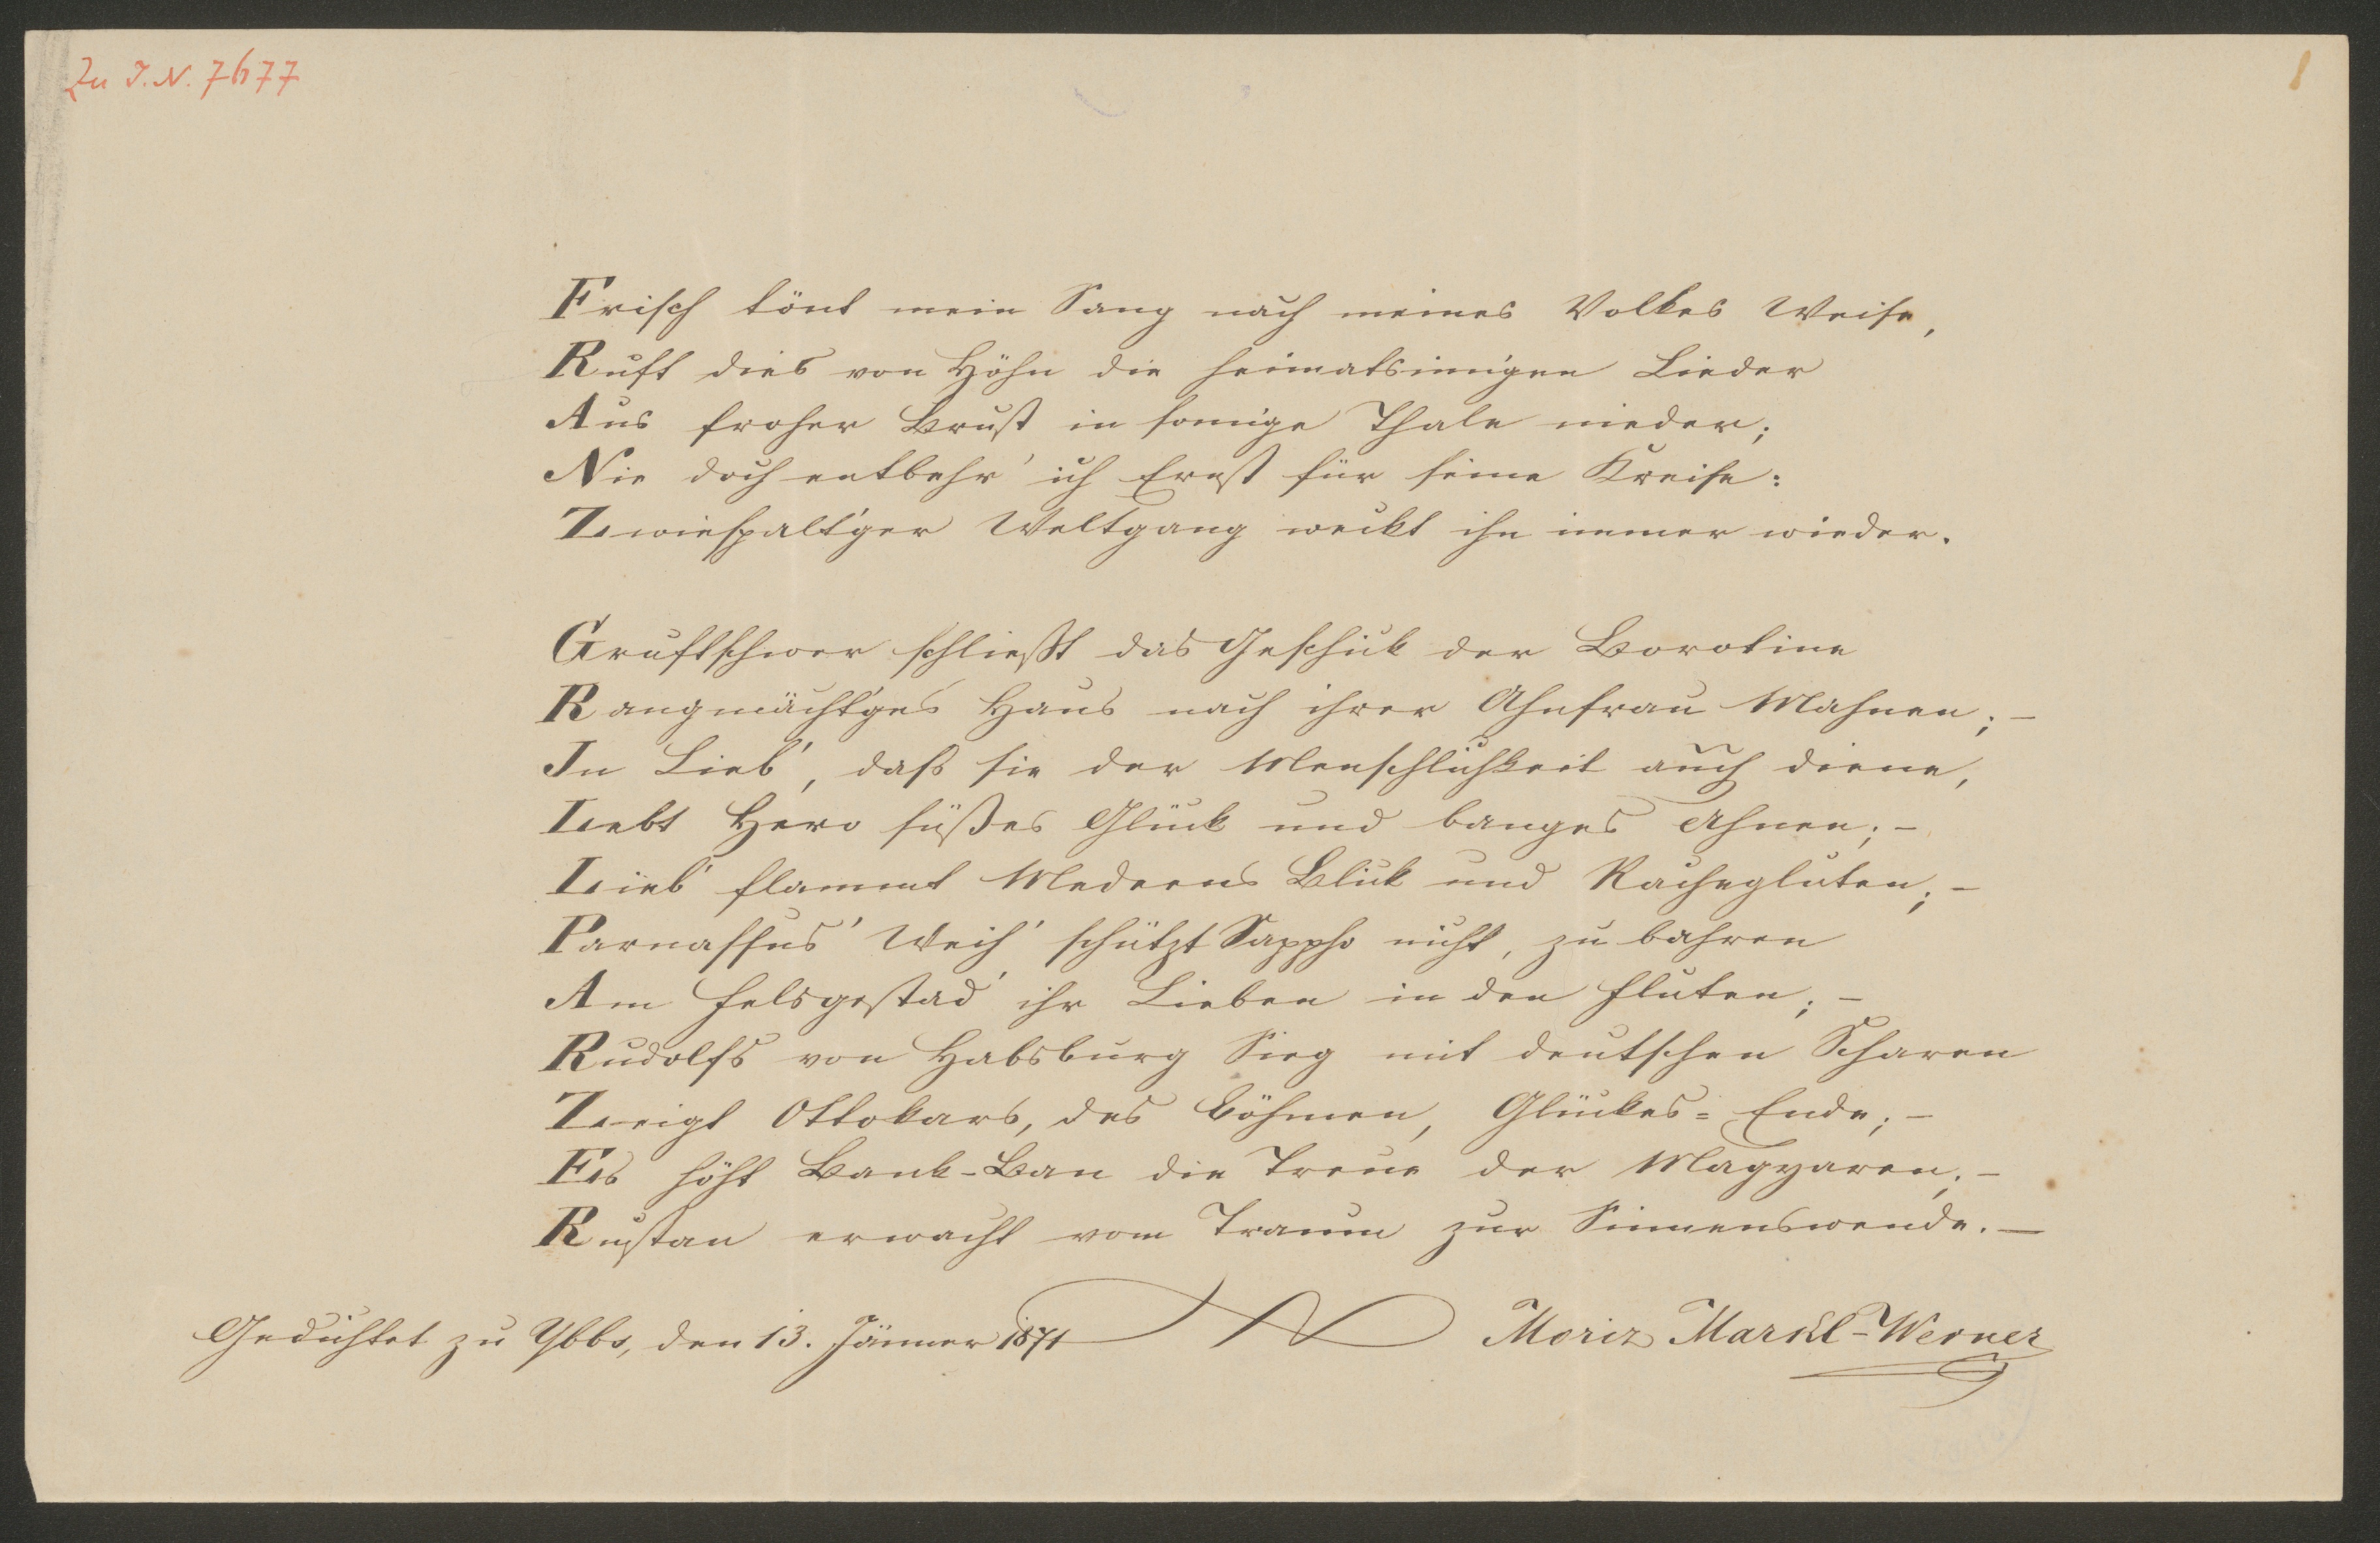 Zu I.N. 7677
1
Frisch tönt mein Sang nach meines Volkes Weise,
Ruft dies von Höhn die heimatsinnigen Lieder
Aus froher Brust in sonnige Thale nieder;
Nie doch entbehr' ich Ernst für seine Kreise:
Zwiespalt'ger Weltgang weckt ihn immer wieder.
Gruftschwer schließt das Geschick der Borotine
Rangmächt'ges Haus nach ihrer Ahnfrau Mahnen; –
In Lieb', daß sie der Menschlichkeit auch diene,
Lebt Hero süßes Glück und banges Ahnen; –
Lieb' flammt Medeens Blick und Rachegluten; –
Parnassus' Weih' schützt Sappho nicht, zu bahren
Am Felsgestad' ihr Lieben in den Fluten; –
Rudolfs von Habsburg Sieg mit deutschen Scharen
Zeigt Ottokars, des Böhmen, Glückes-Ende; –
Es höht Bank-Ban die Treue der Magyaren; –
Rustan erwacht vom Traum zur Sinnenswende. –
Gedichtet zu Ybbs, den 13. Jänner 1871 Moriz Markl-Werner